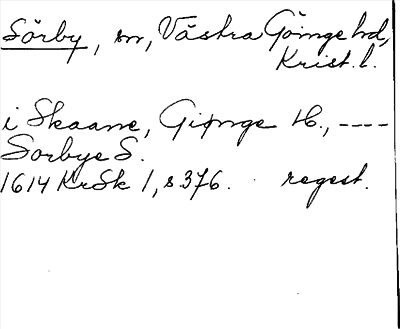 Sörby, sn, Västra Göinge hd,
Krist. l.
i Skaane, Giønge H., ----
Sorbye S.
1614 KrSk 1, s 376. regest.